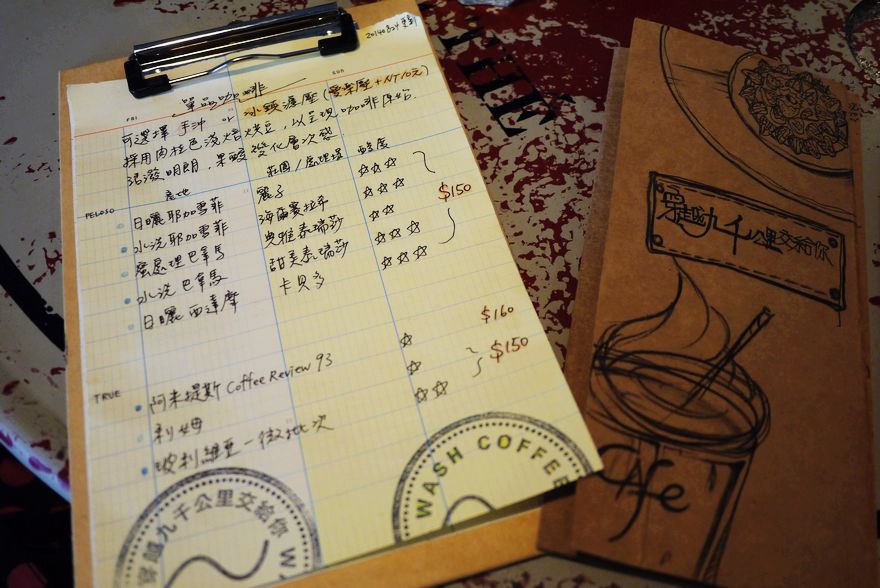 20140824 更新
單品咖啡
FRI
SUN
可選擇 手沖 or 冰鎮濃壓 (愛樂壓 + NT10元)
採用肉桂色淺焙烘豆, 以呈現咖啡原始
活潑明朗, 果酸變化層次發
產地 莊園/處理場 酸度
PELOSO
日曬耶加雪菲 麗子 ☆☆☆
水洗耶加雪菲 海爾賽拉希 ☆☆☆ $150
蜜處理巴拿馬 奧雅泰瑞莎 ☆☆
水洗巴拿馬 甜美泰瑞莎 ☆☆☆
日曬西達摩 卡貝多 ☆☆☆
$160
TRUE
阿米提斯 Coffee Review 93 ☆ $150
利姆 ☆
玻利維亞一微批次 ☆☆
穿越九千公里交給你 W
WASH COFFEE
THE
穿越九千公里交給你
CAfe